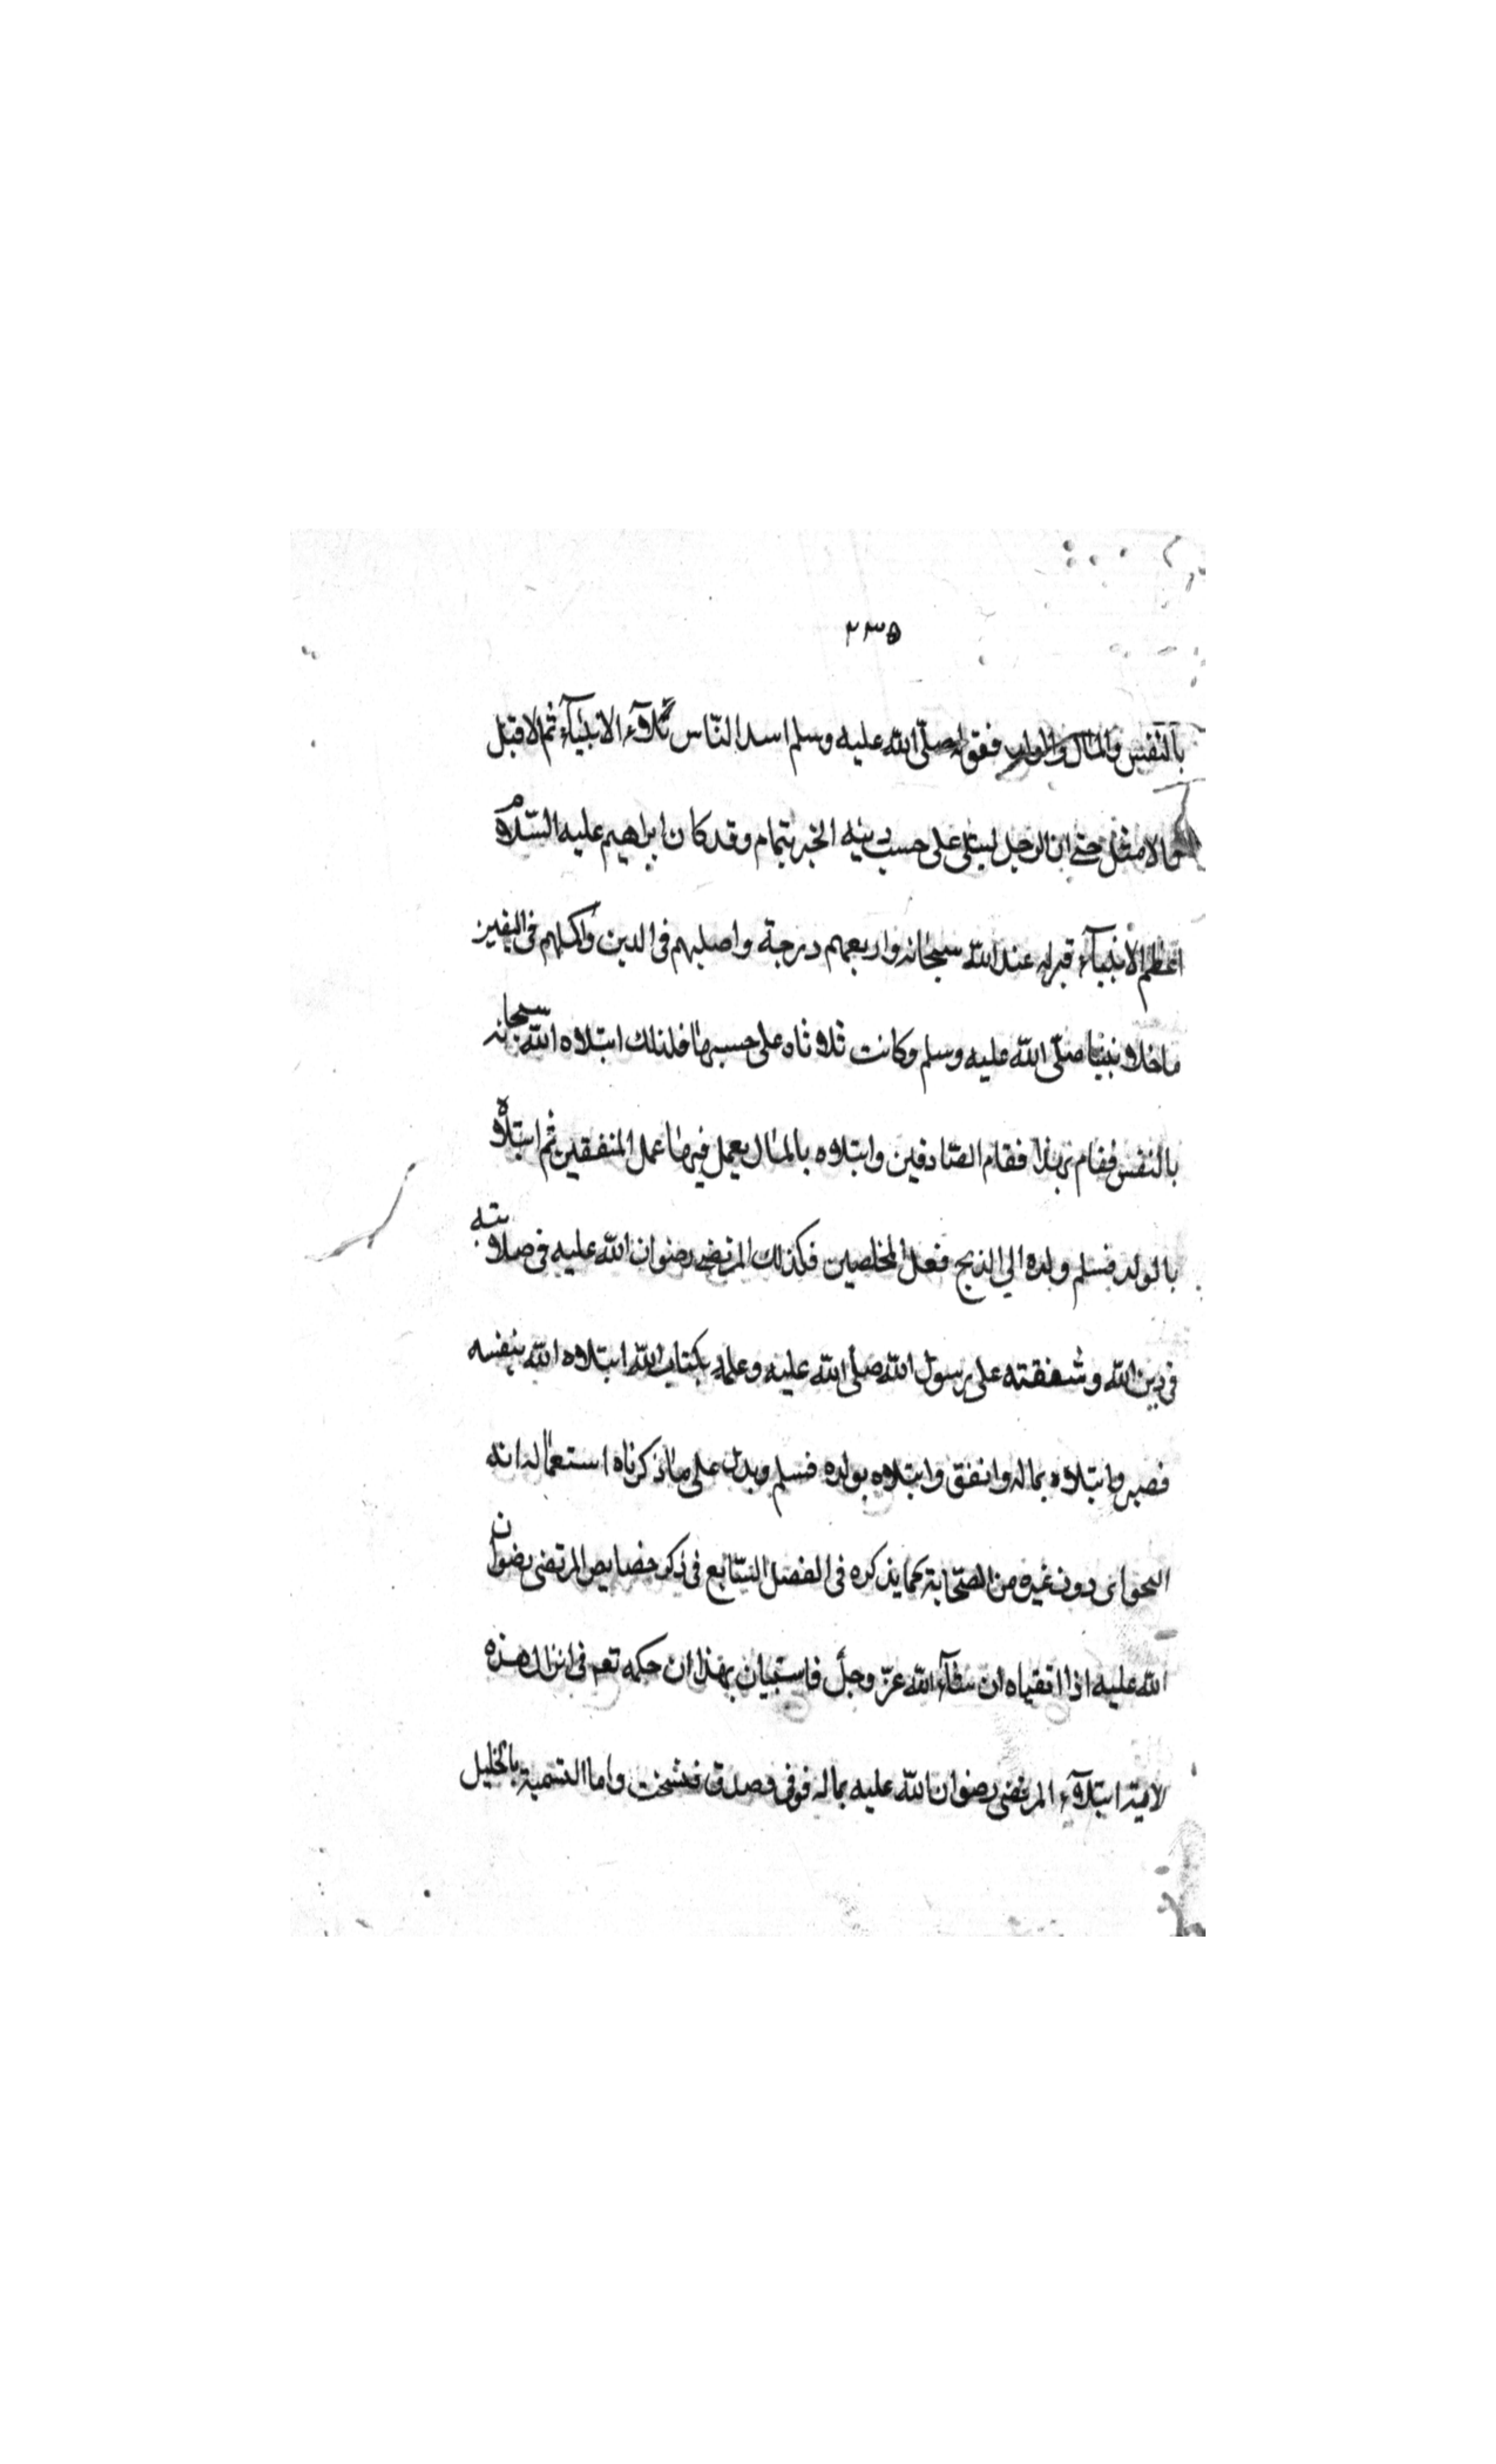 ٢٣٥
بالنفس والمال والولد فقوله صلّى الله عليه وسلم اسد النّاس بلآء الانبيآء ثم الاقبل
فالامثل حتى ان الرجل ليبتلى على حسب دينه الخبر بتمام وقد كان ابراهيم عليه السّلام
اعظم الانبيآء قبله عند الله سبحانه واربعهم درجة واصلبهم فى الدين واكملهم فى اليقين
ماخلا نبينا صلّى الله عليه وسلم وكانت ثلاثاه على حسبها فلذلك ابتلاه الله سبحانه
بالنفس فقام بهذا فقام الصّادقين وابتلاه بالمال يعمل فيها عمل المنفقين ثم ابتلاه
بالولد فسلم ولده الي الذبح فعل المخلصين فكذلك المرتضى رضوان الله عليه فى صلابته
فى دين الله وشفقته على رسول الله صلّى الله عليه وعلمه بكتاب الله ابتلاه الله بنفسه
فصبر وابتلاه بماله وانفق وابتلاه بولده فسلم ويدل على ماذكرناه استعماله انه
النجوى دون غيره من الصّحابة كما يذكره فى الفصل السّابع فى ذكر خصايص المرتضى رضوان
الله عليه اذا اتقياه ان شآء الله عزّ وجلّ فاستبيان بهذا ان حكمه تعم فى انزال هذه
لامية ابتلآء المرتضى رضوان الله عليه بماله فوفى وصدق فنسخت واما التسمية بالخليل